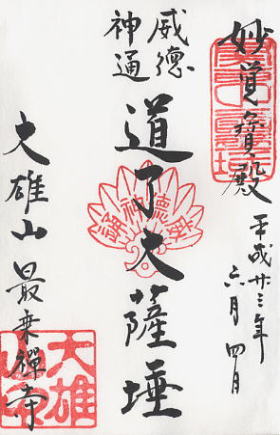 妙覚寳殿
平成廿三年
六月四日
威德
神通
道了大薩埵
大雄山最乗禅寺
大雄
山印